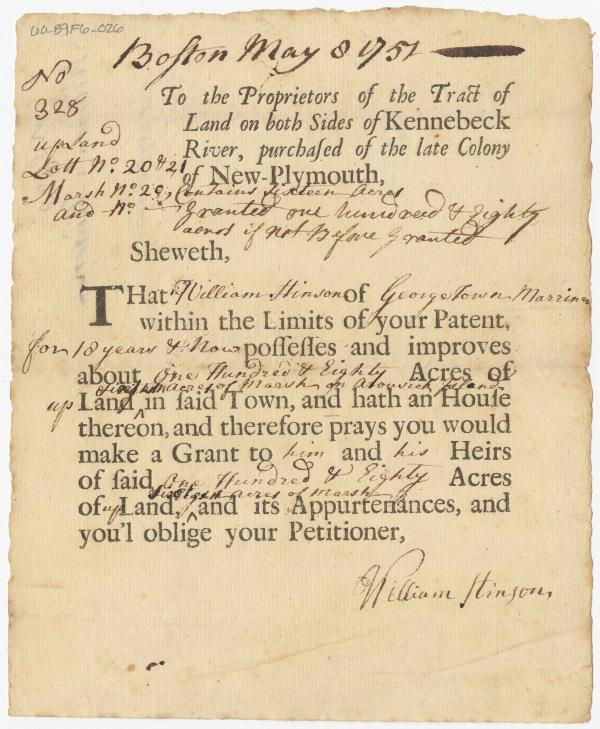 60-B9F6-026
Boston May 8 1751
No
328
upLand
Lott No. 20 & 21
Marsh No. 20, Contains Sixteen Acres
and No.
Granted one hundred & Eighty
acres if not Before Granted
To the Proprietors of the Tract of
Land on both Sides of Kennebeck
River, purchaſed of the late Colony
of New-Plymouth,
Sheweth,
THat William Stinson of GeorgeTown Marriner
within the Limits of your Patent,
for 18 years & Now poſſeſſes and improves
about One Hundred & Eighty Acres of
Sixteen acres of Marsh on Island
up Land ^ in ſaid Town, and hath an Houſe
thereon, and therefore prays you would
make a Grant to him and his Heirs
of ſaid One Hundred & Eighty Acres
Sixteen acres of Marsh
of up Land ^ and its Appurtenances, and
you'l oblige your Petitioner,
William Stinson